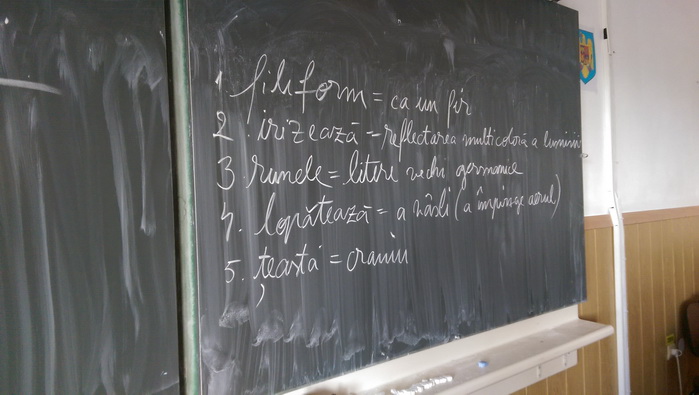 1 filiform = ca un fir
2. irizează = reflectarea multicoloră a luminii
3 runele = litere vechi germanice
4. lopătează = a vâsli (a împinge aerul)
5. țeastă = craniu